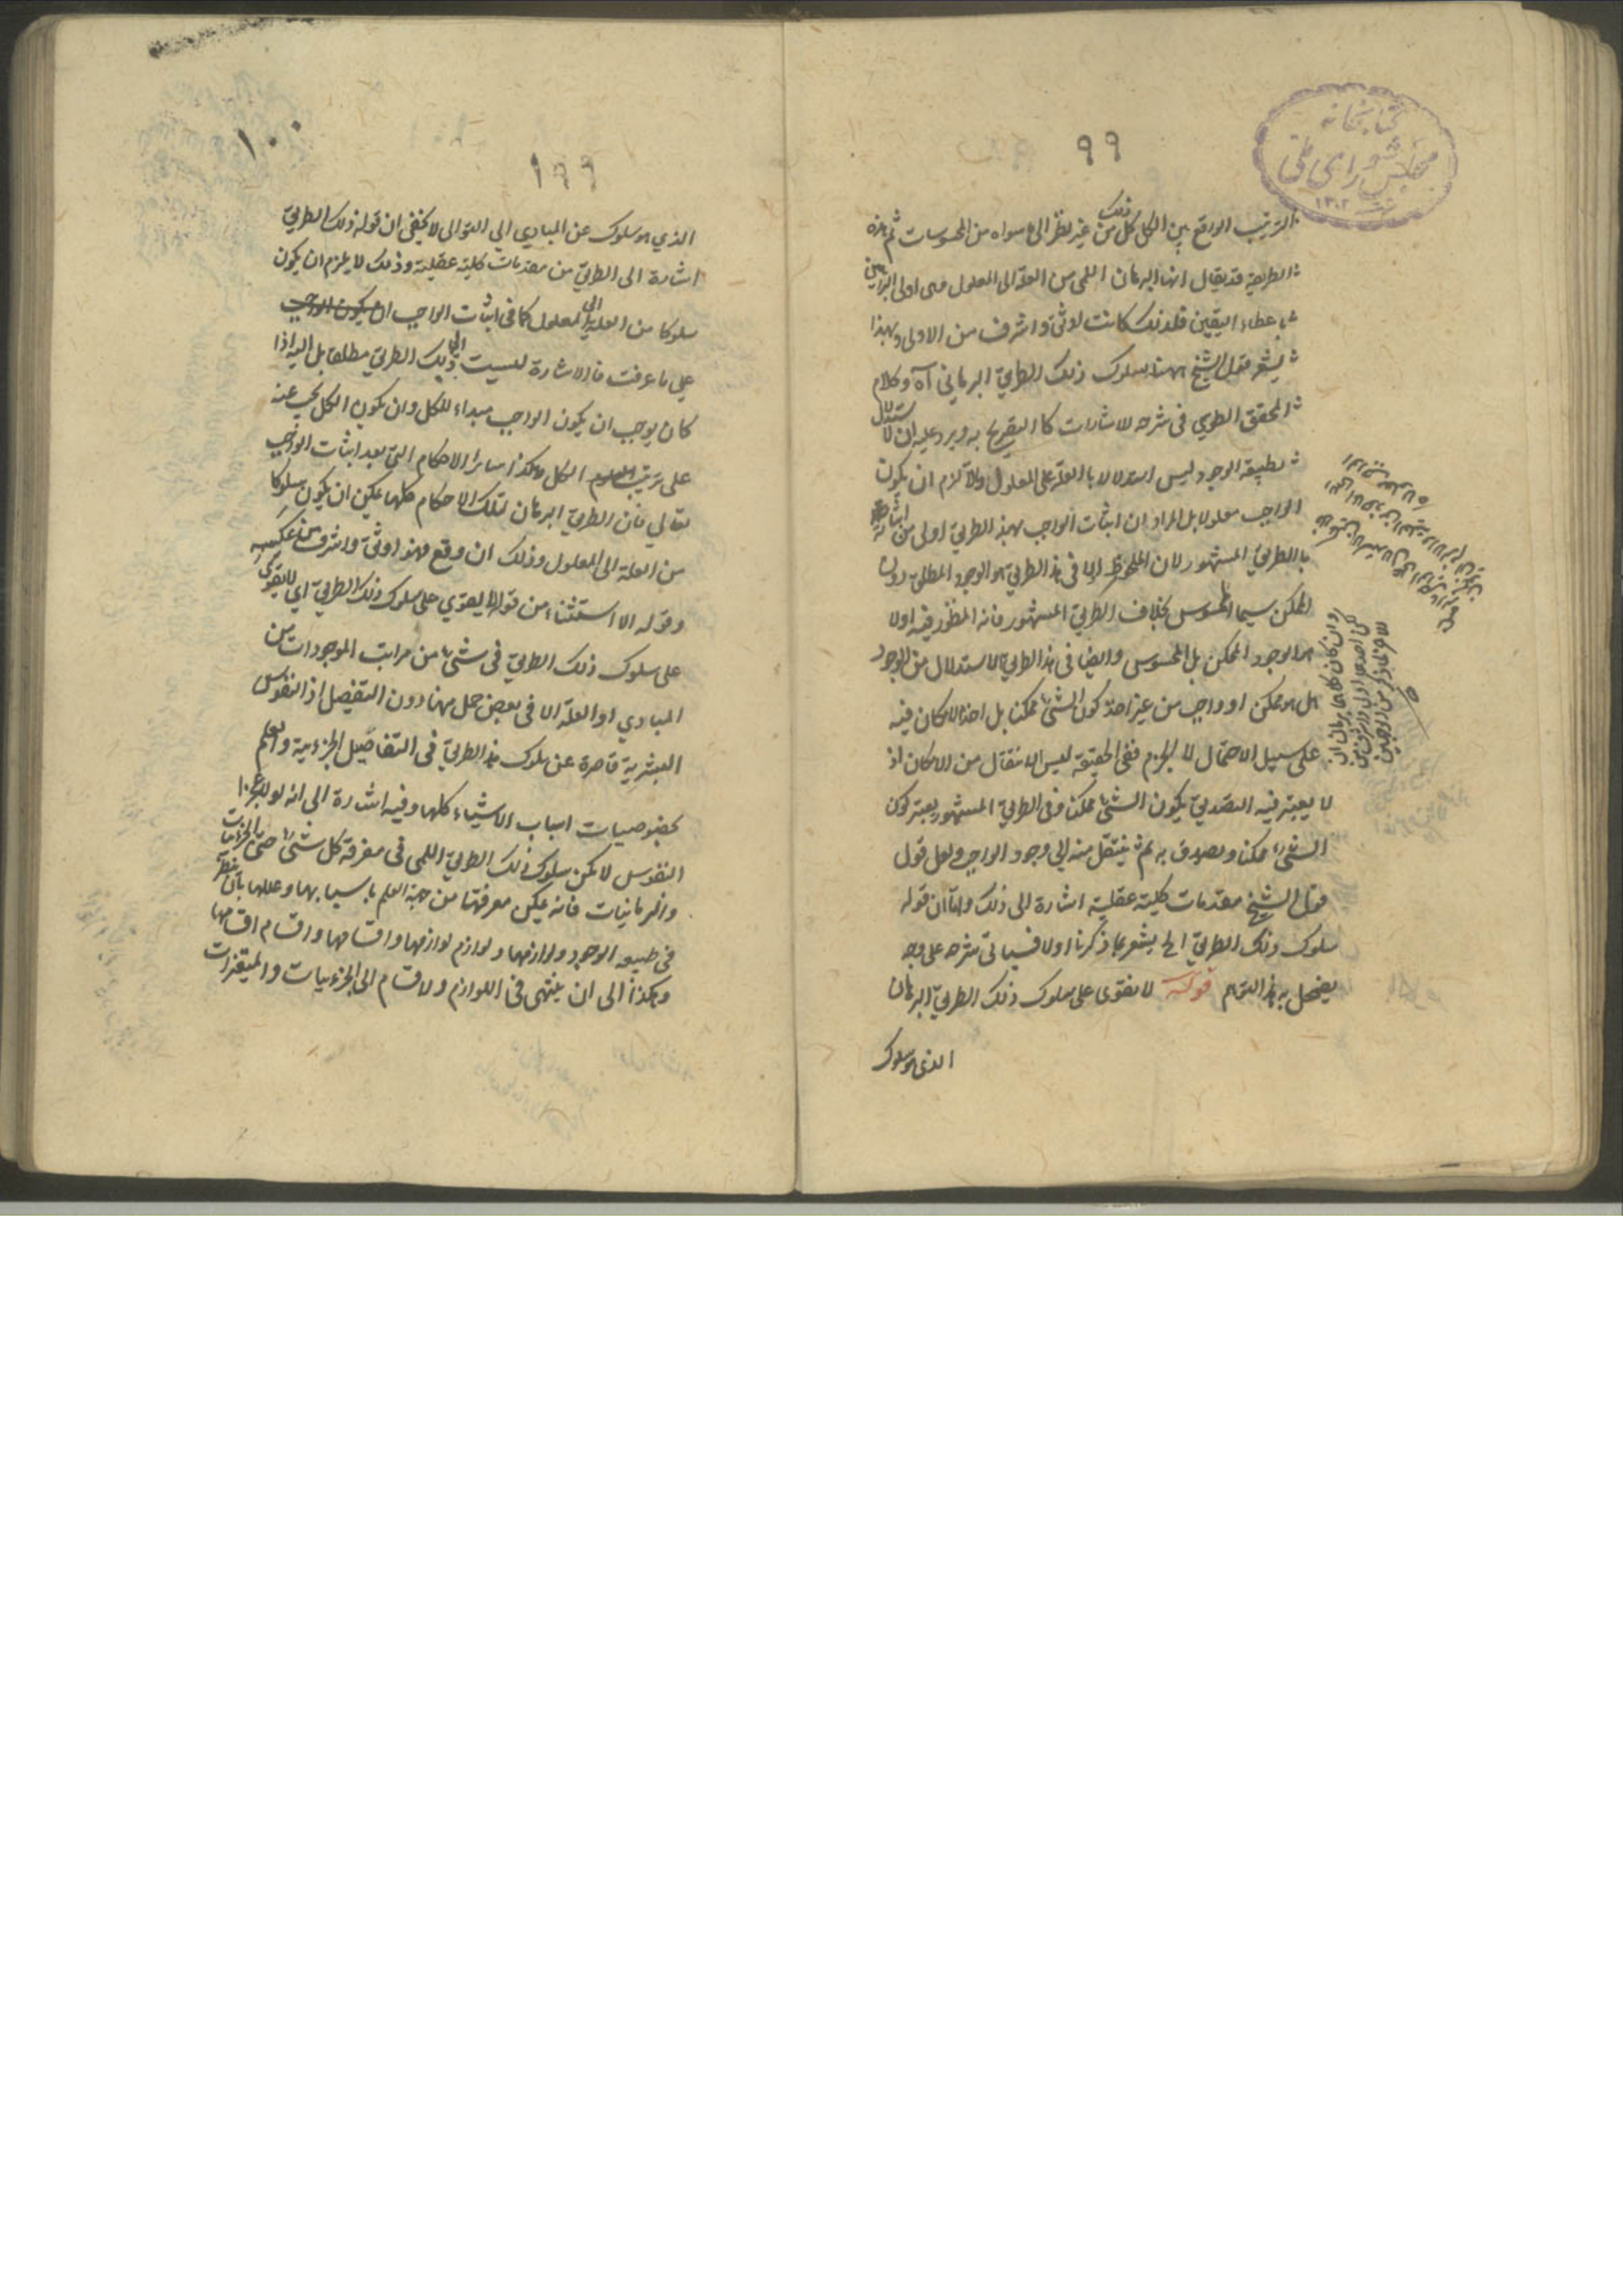 كتابخانه
مجلس شورای ملی
۱۳۰۲
٩٩
الترتيب الواقع بين الكل كل من ذلك غير نظر الى ما سواه من المحسوسات ثم هذه
الطريقة قد يقال انها البرهان اللمى من العلة الى المعلول فهى اولى البراهين
باعطاء اليقين فلذلك كانت اوثق واشرف من الاولى وبهذا
يشعر قول الشيخ ههنا سلوك ذلك الطريق البرهاني آه وكلام
المحقق الطوسي فى شرحه للاشارات كالتصريح به ويرد عليه ان الاستدلال
بطبيعة الوجود ليس استدلالا بالعلة على المعلول والا لزم ان يكون
الواجب معلولا بل المراد ان اثبات الواجب بهذا الطريق اولى من اثباته
بالطريق المشهور لان الملحوظ اولا فى هذا الطريق هو الوجود المطلق دون
الممكن سيما المحسوس بخلاف الطريق المشهور فانه المنظور فيه اولا
هو الوجود الممكن بل المحسوس وايضا فى هذا الطريق الاستدلال من الوجود
هل هو ممكن او واجب من غير اخذ كون الشئ ممكنا بل اخذ الامكان فيه
على سبيل الاحتمال لا الجزم ففى الحقيقة ليس الانتقال من الامكان اذ
لا يعتبر فيه التصديق بكون الشئ ممكنا وفى الطريق المشهور يعتبر كون
الشئ ممكنا ويصدق به ثم ينتقل منه الى وجود الواجب ولعل قول
قول الشيخ مقدمات كلية عقلية اشارة الى ذلك واما ان قوله
سلوك ذلك الطريق الخ يشعر بما ذكرنا اولا فسياتى شرحه على وجه
يضمحل به هذا التوهم قوله لا نقوى على سلوك ذلك الطريق البرهان
الذى هو سلوك
وان كان كلاهما برهان ان
لكن احدهما اولى واشرف من
الاخر لما ذكر من الوجهين
١٠٠
١٩٩
الذي هو سلوك عن المبادي الى التوالى لا يخفى ان قوله ذلك الطريق
اشارة الى الطريق من مقدمات كلية عقلية وذلك لا يلزم ان يكون
سلوكا من العلة الى المعلول كما فى اثبات الواجب ان يكون الواجب
على ما عرفت فالاشارة ليست الى ذلك الطريق مطلقا بل اليه اذا
كان يوجب ان يكون الواجب مبداء للكل وان يكون الكل يجب عنه
على ترتيب الكل وهكذا سائر الاحكام التى بعد اثبات الواجب
تعالى فان الطريق البرهان لتلك الاحكام كلها يمكن ان يكون سلوكا
من العلة الى المعلول وذلك ان وقع فهو اوثق واشرف من عكسه
وقوله الا استثناء من قوله لا يقوي على سلوك ذلك الطريق اي لا يقوى
على سلوك ذلك الطريق فى شئ من مراتب الموجودات من
المبادي او العلة الا فى بعض جمل منها دون التفصيل اذ النفوس
البشرية قاصرة عن سلوك هذا الطريق فى التفاصيل الجزئية والعلم
بخصوصيات اسباب الاشياء كلها وفيه اشارة الى انه لولا عجز
النفوس لامكن سلوك ذلك الطريق اللمى فى معرفة كل شئ حتى الجزئيات
والزمانيات فانه يمكن معرفتها من جهة العلم باسبابها وعللها بان ينظر
فى طبيعة الوجود ولوازمها ولوازم لوازمها واقسامها واقسام اقسامها
وهكذا الى ان ينتهى فى اللوازم والاقسام الى الجزئيات والمتغيرات